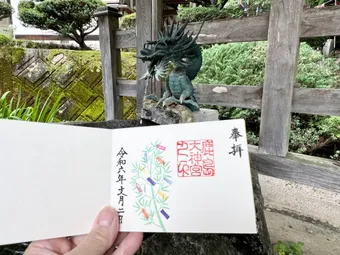 奉拝
鹿島
大神宮
令和六年文月二